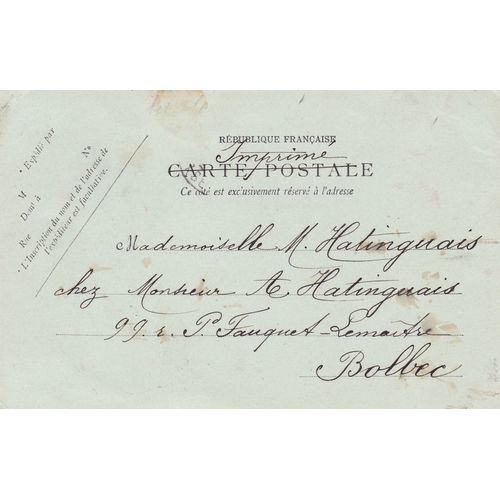 * Expédié par
M
Demt à
Rue Nº
* L'Inscription du nom et de l'adresse de
l'expéditeur est facultative.
RÉPUBLIQUE FRANÇAISE
Imprimé
CARTE POSTALE
Ce côté est exclusivement réservé à l'adresse
Mademoiselle M. Hatinguais
chez Monsieur A Hatinguais
99 r. P. Fauquet-Lemaître
Bolbec